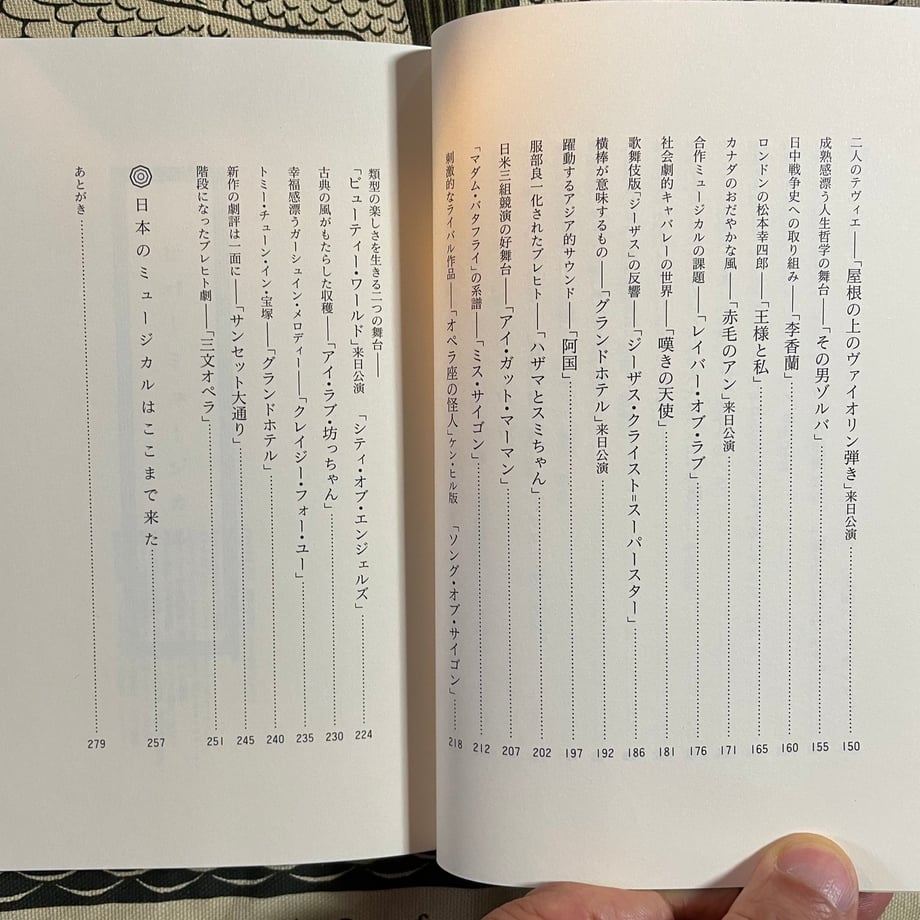 二人のテヴィエ――「屋根の上のヴァイオリン弾き」来日公演……150
成熟感漂う人生哲学の舞台――「その男ゾルバ」……155
日中戦争史への取り組み――「李香蘭」……160
ロンドンの松本幸四郎――「王様と私」……165
カナダのおだやかな風――「赤毛のアン」来日公演……171
合作ミュージカルの課題――「レイバー・オブ・ラブ」……176
社会劇的キャバレーの世界――「嘆きの天使」……181
歌舞伎版「ジーザス」の反響――「ジーザス・クライスト=スーパースター」……186
横棒が意味するもの――「グランドホテル」来日公演……192
躍動するアジア的サウンド――「阿国」……197
服部良一化されたブレヒト――「ハザマとスミちゃん」……202
日米三組競演の好舞台――「アイ・ガット・マーマン」……207
「マダム・バタフライ」の系譜――「ミス・サイゴン」……212
刺激的なライバル作品――「オペラ座の怪人」ケン・ヒル版 「ソング・オブ・サイゴン」……218
類型の楽しさを生きる二つの舞台――
「ビューティー・ワールド」来日公演 「シティ・オブ・エンジェルズ」……224
古典の風がもたらした収穫――「アイ・ラブ・坊っちゃん」……230
幸福感漂うガーシュイン・メロディー――「クレイジー・フォー・ユー」……235
トミー・チューン・イン・宝塚――「グランドホテル」……240
新作の劇評は一面に――「サンセット大通り」……245
階段になったブレヒト劇――「三文オペラ」……251
日本のミュージカルはここまで来た……257
あとがき……279